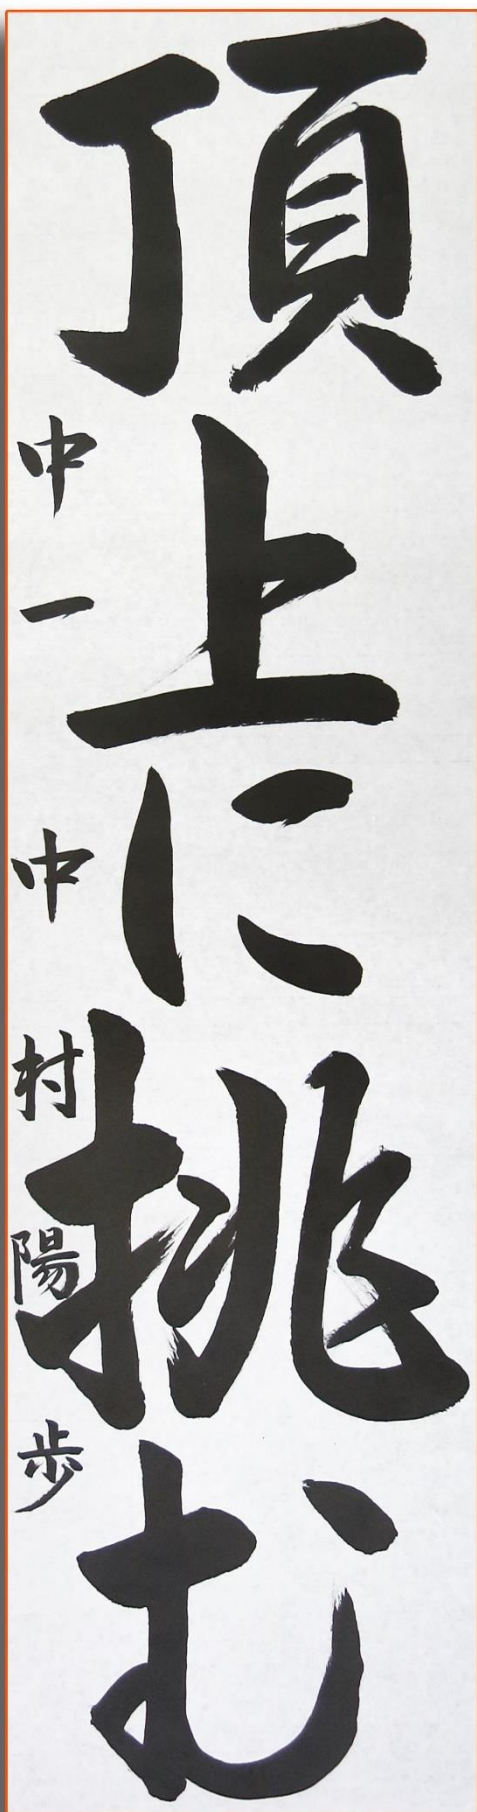 頂上に挑む
中一 中村陽歩